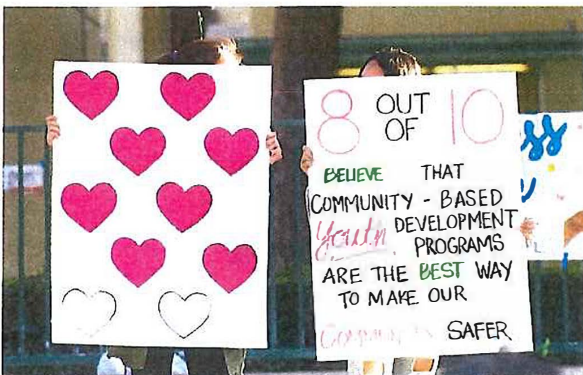 8 OUT OF 10
BELIEVE THAT
COMMUNITY - BASED
Youth DEVELOPMENT
PROGRAMS
ARE THE BEST WAY
TO MAKE OUR
SAFER
ss